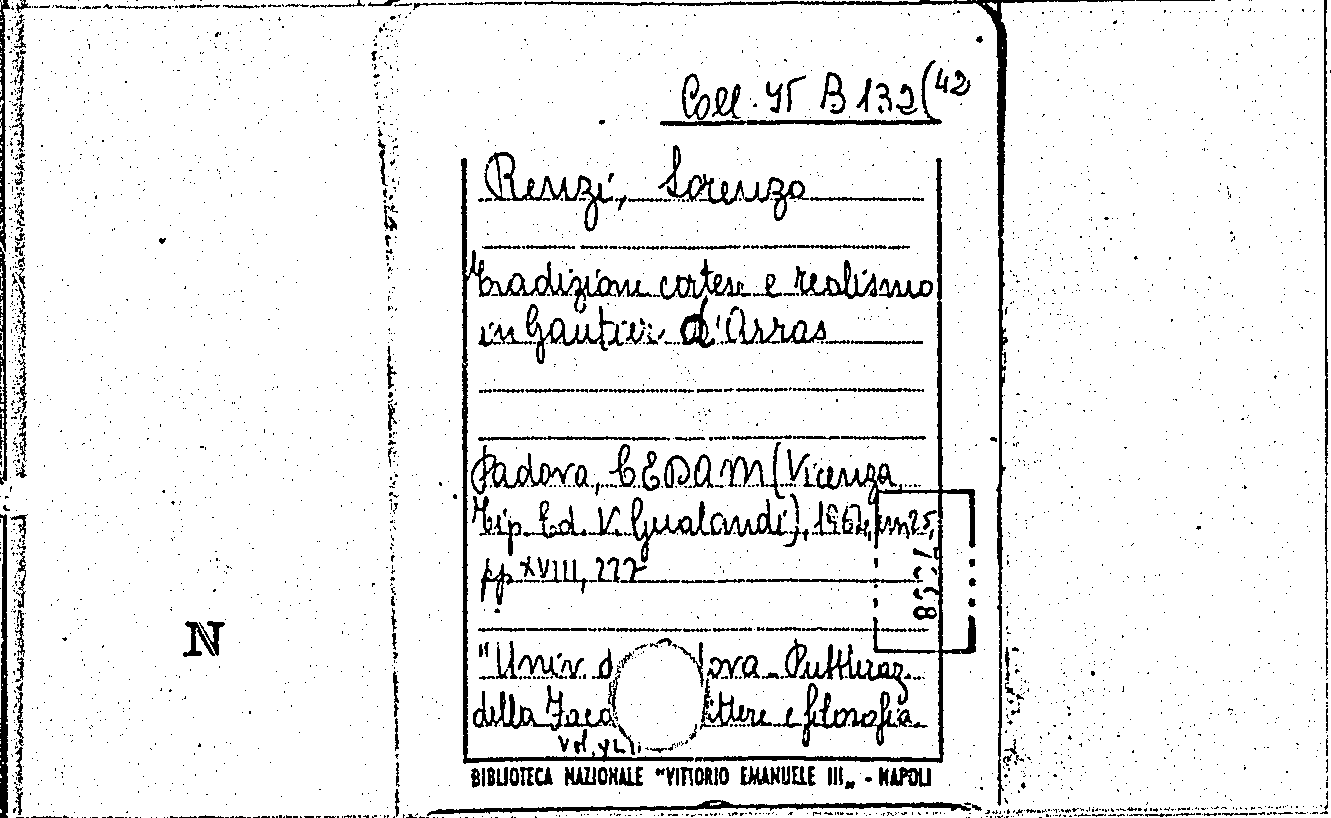 Coll. B 132(42
Renzi, Lorenzo
Tradizione cortese e realismo
in Gautier d'Arras
Padova, CEDAM (Vicenza,
Tip. Ed. V. Gualandi), 196 , cm 25,
pp. XVIII, 222
N
"Univ. d ova. Pubblicaz.
della Faco ettere e filosofia.
vol. XLII
BIBLIOTECA NAZIONALE "VITTORIO EMANUELE III„ - NAPOLI